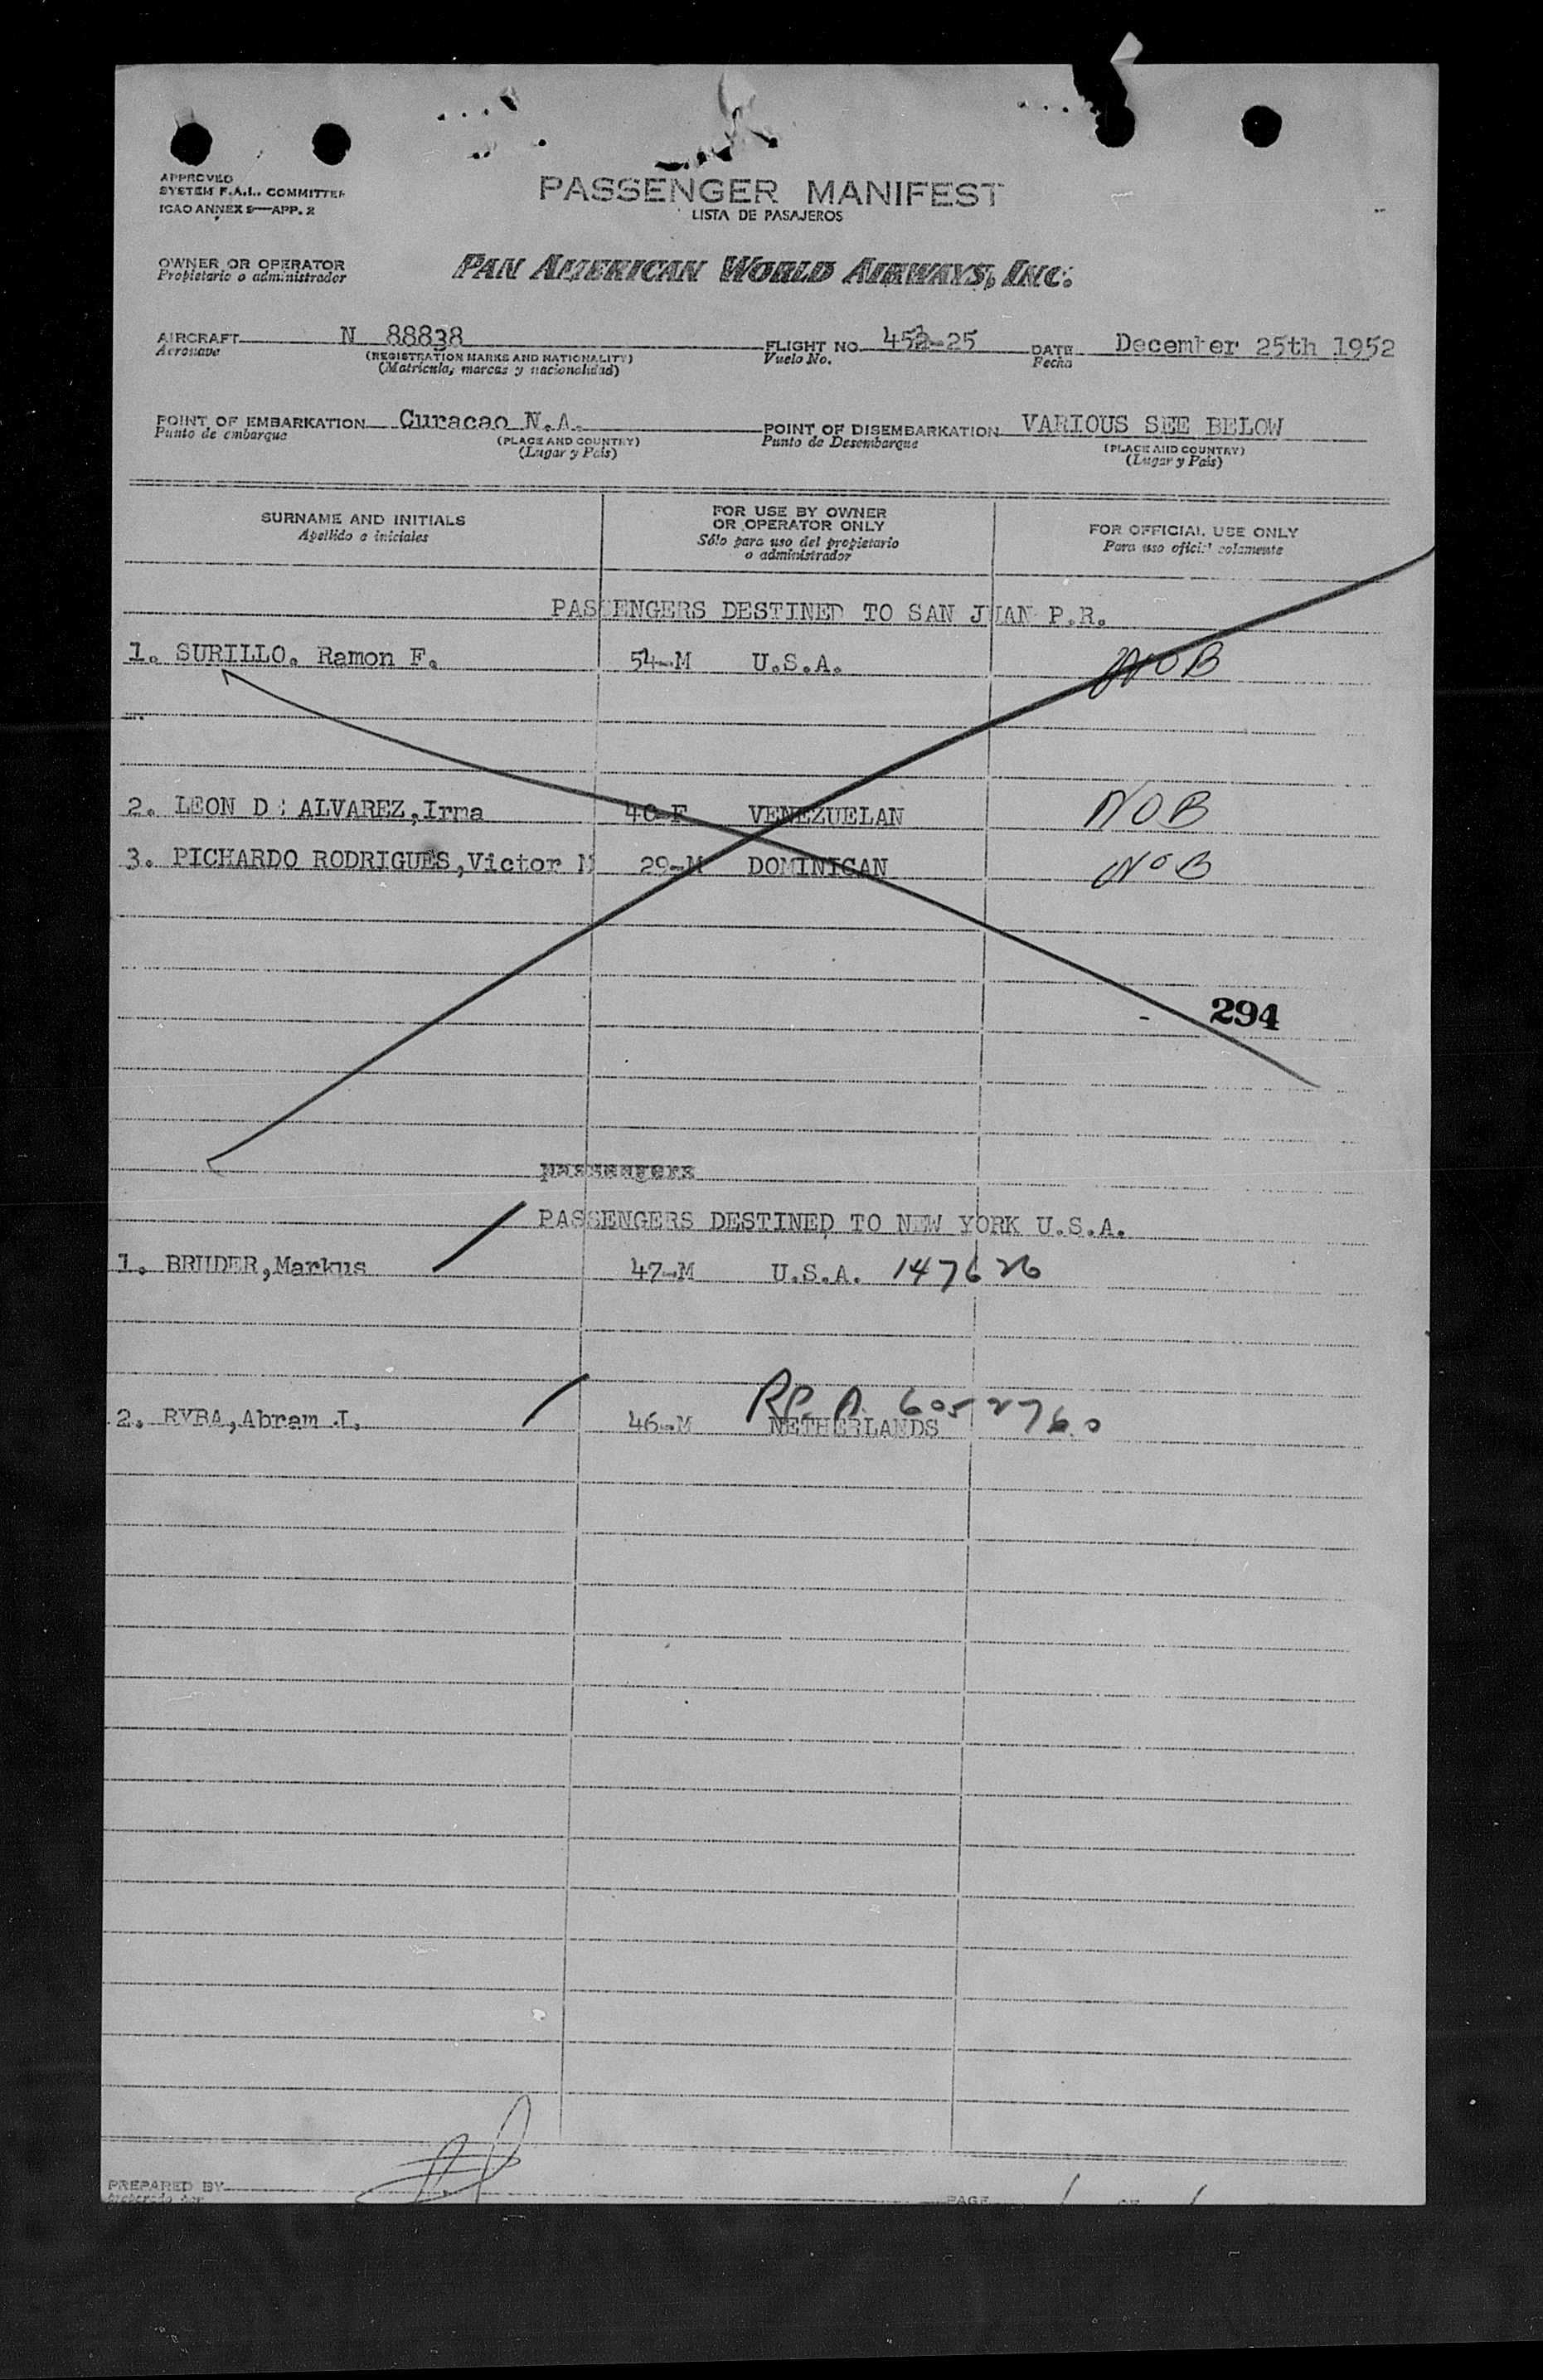 APPROVED
SYSTEM F.A.L. COMMITTEE
ICAO ANNEX 9—APP. 2
PASSENGER MANIFEST
LISTA DE PASAJEROS
OWNER OR OPERATOR
Propietario o administrador
PAN AMERICAN WORLD AIRWAYS, INC.
AIRCRAFT N 88838 FLIGHT NO. -25 DATE December 25th 1952
Aeronave (REGISTRATION MARKS AND NATIONALITY) Vuelo No. Fecha
(Matrícula, marcas y nacionalidad)
POINT OF EMBARKATION Curacao N.A. POINT OF DISEMBARKATION VARIOUS SEE BELOW
Punto de embarque (PLACE AND COUNTRY) Punto de Desembarque (PLACE AND COUNTRY)
(Lugar y País) (Lugar y País)
SURNAME AND INITIALS FOR USE BY OWNER OR OPERATOR ONLY FOR OFFICIAL USE ONLY
Apellido e iniciales Sólo para uso del propietario o administrador Para uso oficial solamente
PASSENGERS DESTINED TO SAN JUAN P.R.
1. SURILLO. Ramon F. 54-M U.S.A. NOB
2. LEON DE ALVAREZ,Irma 40-F VENEZUELAN NOB
3. PICHARDO RODRIGUES,Victor M 29-M DOMINICAN NOB
294
passengers
PASSENGERS DESTINED TO NEW YORK U.S.A.
1. BRUDER,Markus 47-M U.S.A. 147626
RP. A. 6052760
2. RYBA,Abram J. 46-M NETHERLANDS
PREPARED BY PAGE 1 OF 1